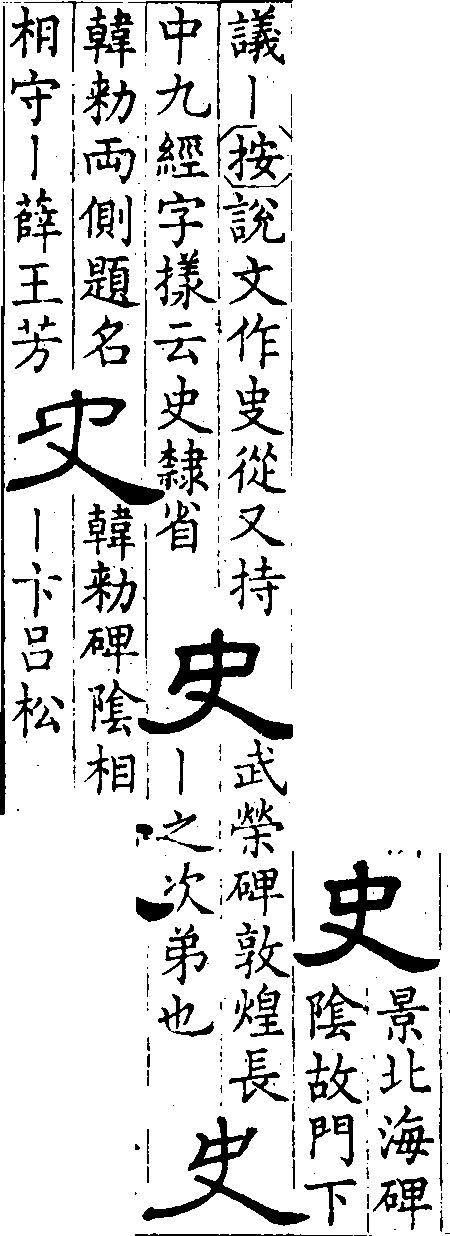 史
景北海碑
陰故門下
議丨按說文作㕜從又持
中九經字樣云史隸省
史
武榮碑敦煌長
丨之次弟也
史
韓勑両側題名
相守丨薛王芳
史
韓勑碑陰相
丨卞呂松